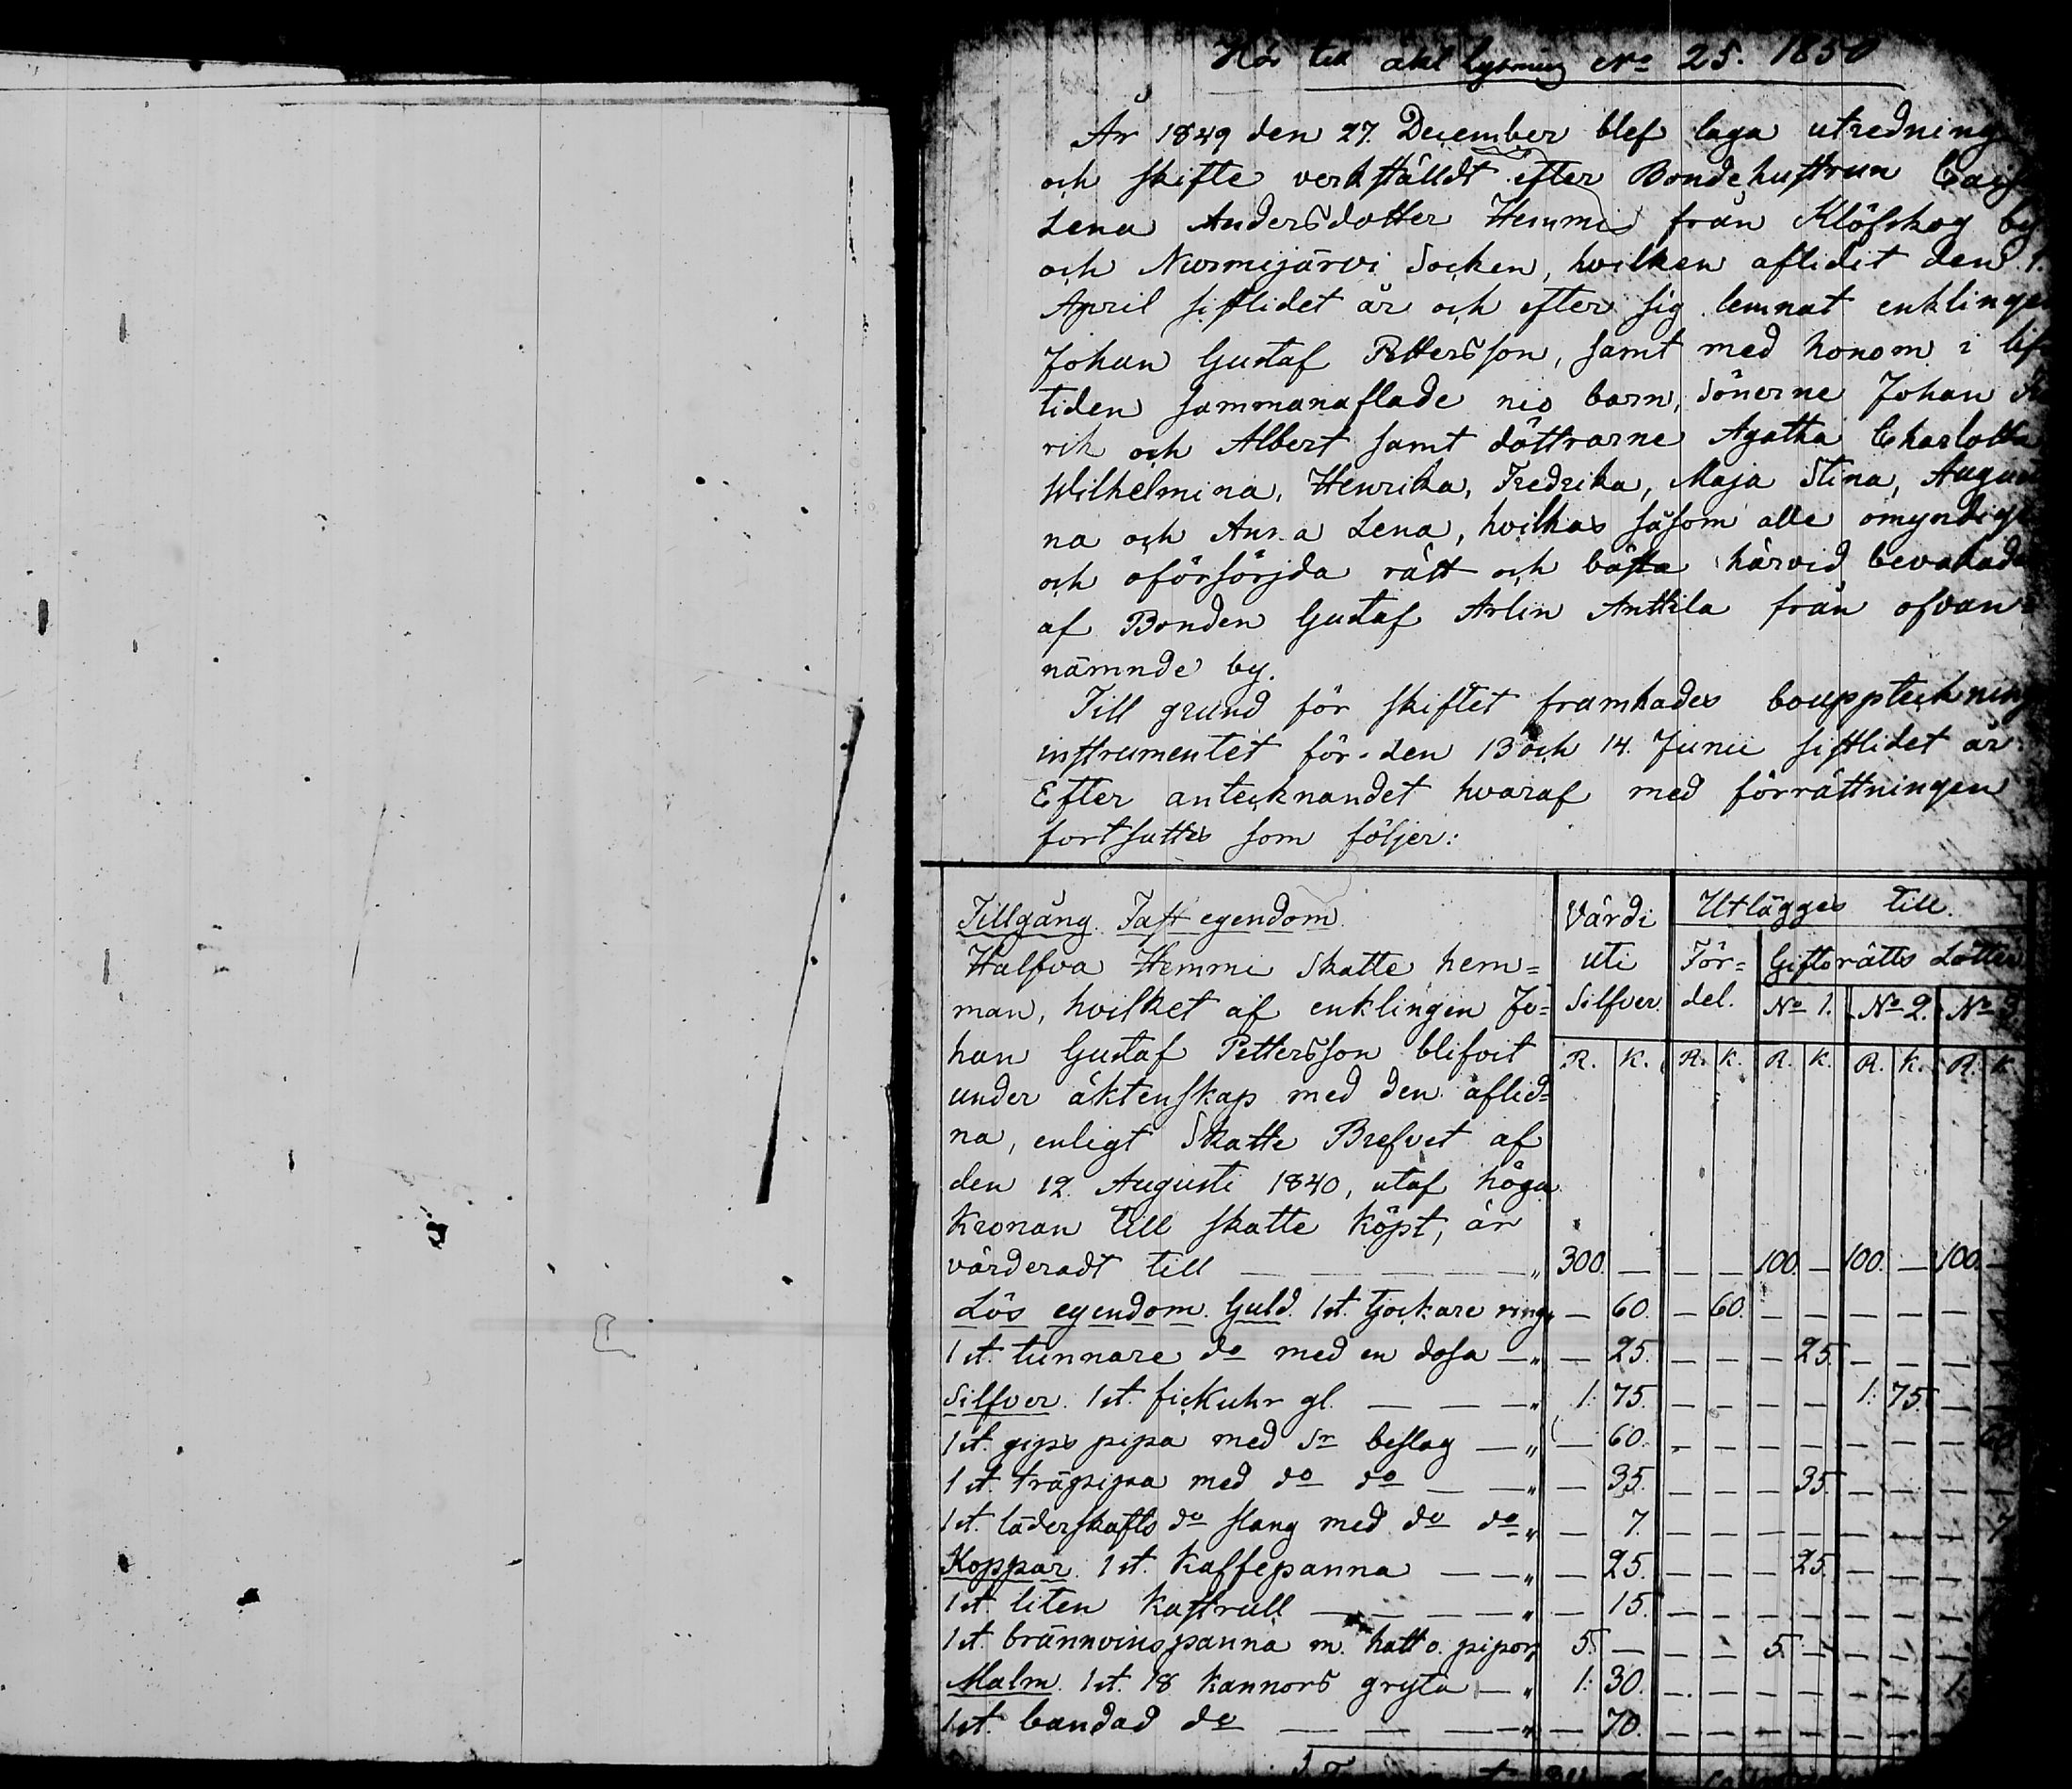 Hör till äkt. lysning No 25. 1850
År 1849 den 27. December blef laga utredning
och skifte verkställdt efter Bondehustrun Cajsa
Lena Andersdotter Hemmi från Klöfskog by
och Nurmijärvi Socken, hvilken aflidit den 1.
April sistlidet år och efter sig lemnat enklingen
Johan Gustaf Pettersson, samt med honom i lifs
tiden sammanaflade nio barn, Sönerne Johan
rik och Albert samt döttrarne Agatha Charlotta
Wilhelmina, Henrika, Fredrika, Maja Stina, August
na och Anna Lena, hvilkas såsom alle omyndige
och oförsörjda rätt och bästa härvid bevakade
af Bonden Gustaf Arlin Anttila från ofvan=
nämnde by.
Till grund för skiftet framhades bouppteckning
instrumentet för den 13 och 14. Junii sistlidet år.
Efter antecknandet hvaraf med förrättningen
fortsattes som följer:
Tillgång. Fast egendom. Värdi Utlägges till.
Halfva Hemmi Skatte hem= uti För= Giftorätts Lotter
man, hvilket af enklingen Jo= Silfver. del. No 1. No 2. No 3.
han Gustaf Pettersson blifvit R. K. R. K. R. K. R. K. R. K
under äktenskap med den aflid=
na, enligt Skatte Brefvet af
den 12. Augusti 1840, utaf höga
Kronan till skatte köpt, är
värderadt till — — — — — " 300. — — — 100. — 100. — 100. —
Lös egendom. Guld. 1 st. tjockare ring " — 60. — 60. — — — — — —
1 st. tunnare do med en dosa — " — 25. — — — 25. — — — —
Silfver. 1 st. fickuhr gl. — — — " 1. 75. — — — — 1. 75. — —
1 st. gips pipa med Sr beslag — " — 60. — — — — — — — 60.
1 st. träpipa med do do — — " — 35. — — — 35. — — — —
1 st. läderskafts do slang med do do " — 7. — — — — — — — 7
Koppar. 1 st. Kaffepanna — — " — 25. — — — 25. — — — —
1 st. liten Kastrull — — — — " — 15. — — — — — — — —
1 st. brännvinspanna m. hatt o. pipor " 5. — — — 5. — — — — —
Malm. 1 st. 18 Kannors gryta — " 1. 30. — — — — — — 1.
1 st. bandad do — — — — " — 70. — — — — — — —